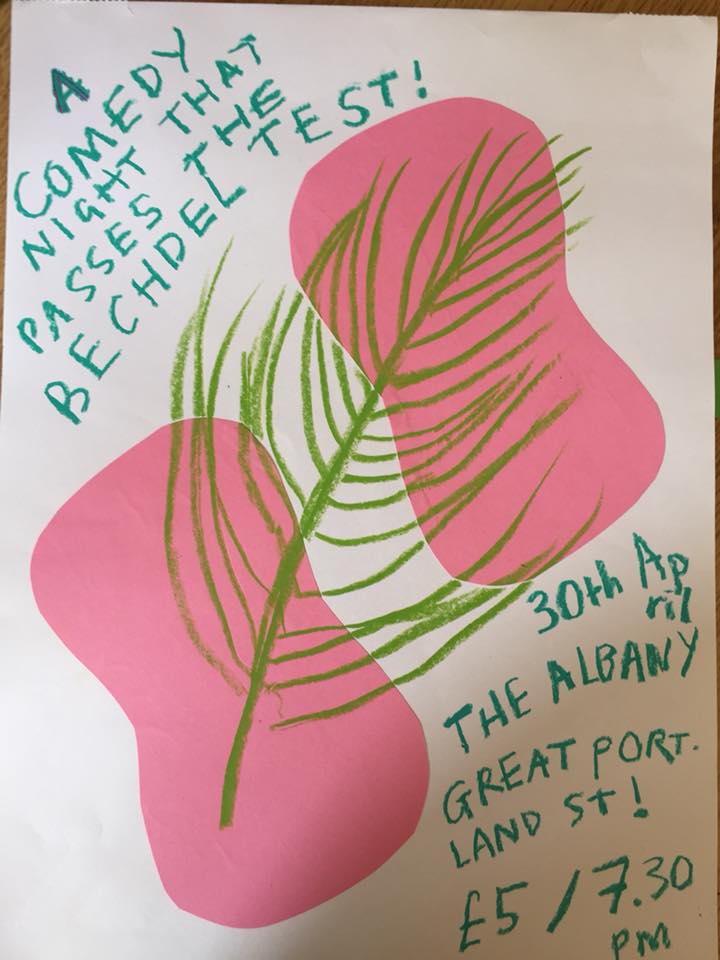 A
COMEDY
NIGHT THAT
PASSES THE
BECHDEL TEST!
30th Ap
ril
THE ALBANY
GREAT PORT.
LAND ST!
£5 / 7.30
pm